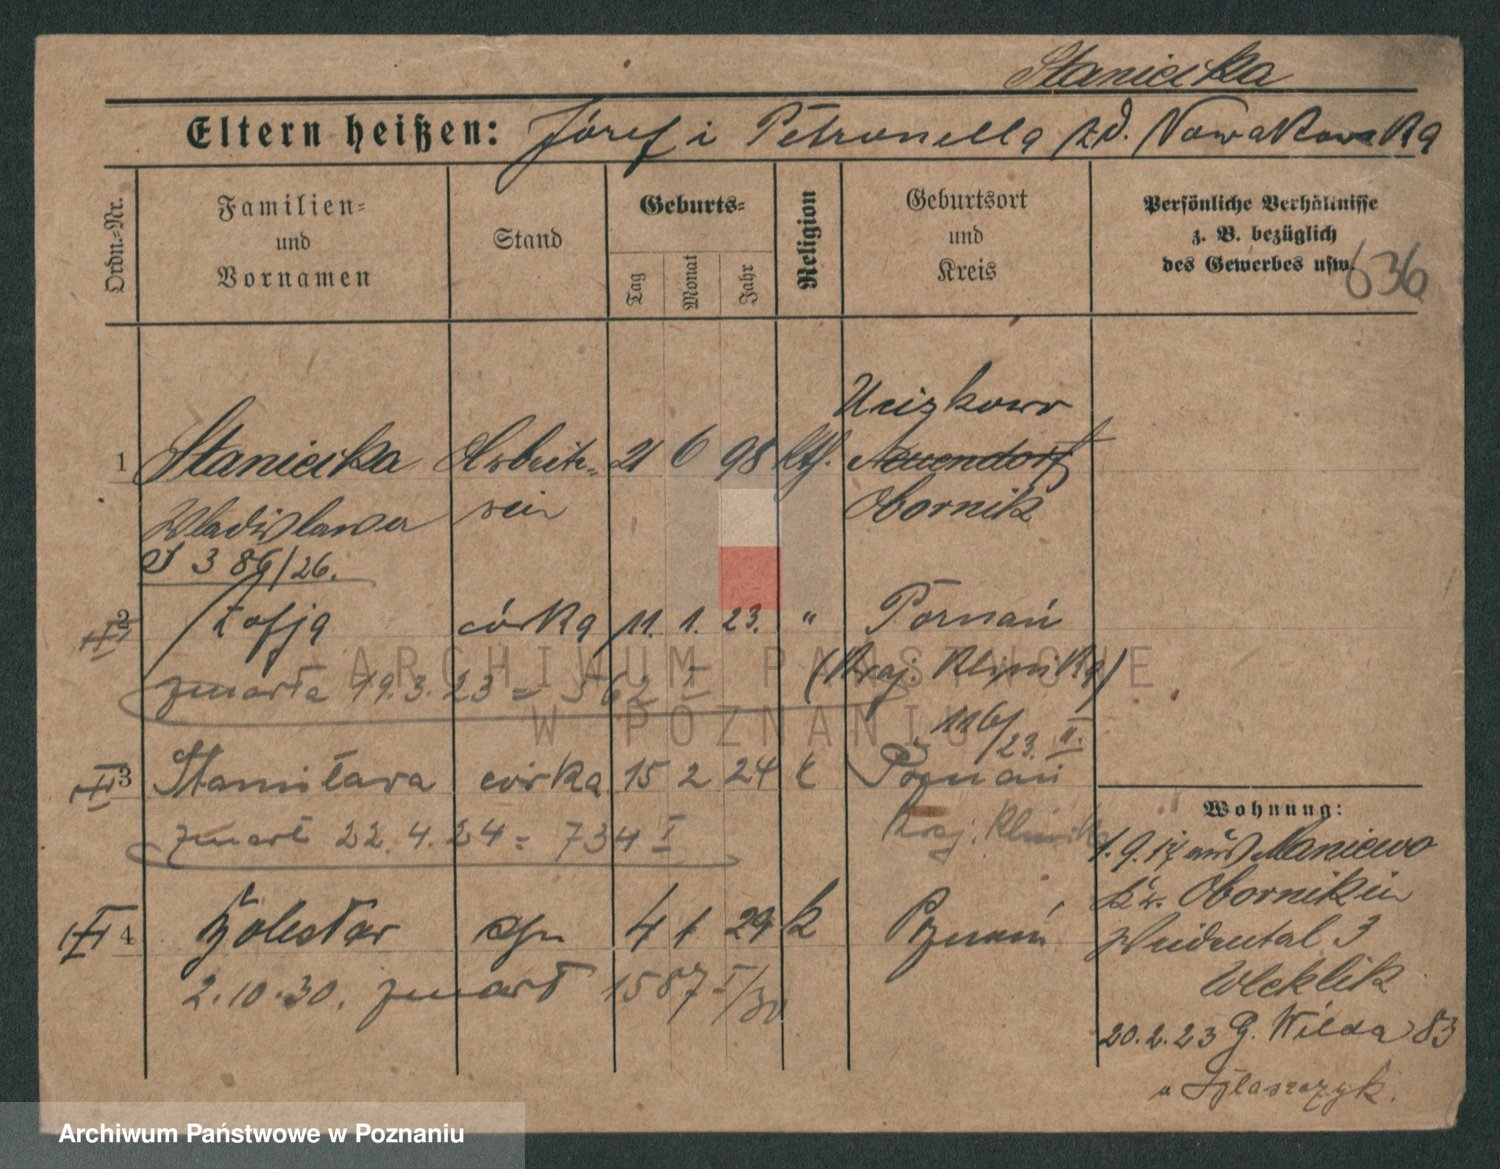 Staniecka
Eltern heißen: Józef i Petronella zd. Nowakowska
Ordn.-Nr.
Familien-
und
Vornamen
Stand
Geburts-
Tag
Monat
Jahr
Religion
Geburtsort
und
Kreis
Persönliche Verhältnisse
z. B. bezüglich
des Gewerbes usw.
636
Uścikowo
1 Staniecka Arbeite- 21 6 98 kth. Neuendorf
Wladislawa rin Obornik
S 386/26.
2 Zofja córka 11. 1. 23. " Poznań
zmarła 19.3.23 = 562 I (Kraj. Klinika)
116/23. II.
3 Stanisława córka 15 2 24 k Poznań
zmarł 22.4.24 = 734 I Kraj. Klinik
4 syn 4 1 29 k Poznań
2.10.30. zmarł 1587 I/30
Wohnung:
1.9.17 aus Maniewo
Kr. Obornik in
Weidental 3
Weklik
20.2.23 G. Wilda 83
u
ARCHIWUM PAŃSTWOWE
W POZNANIU
Archiwum Państwowe w Poznaniu